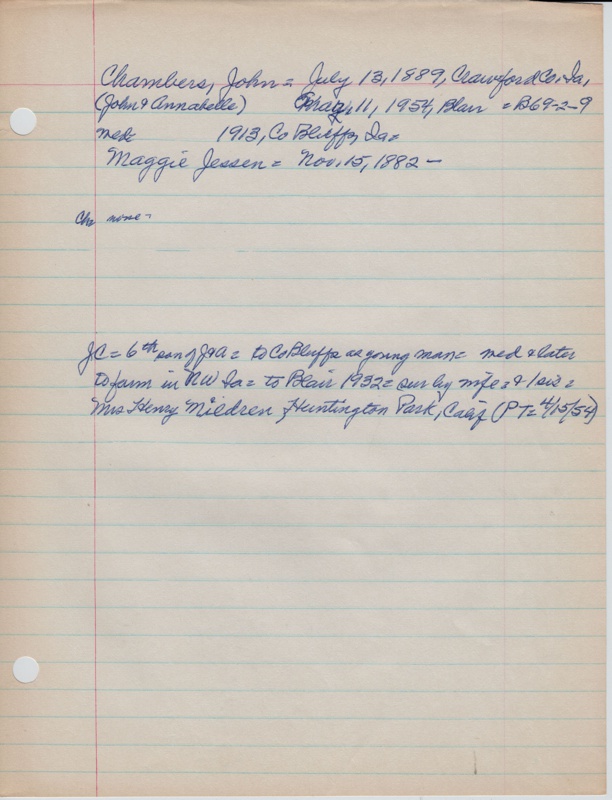 Chambers, John = July 13, 1889, Crawford Co. Ia,
(John & Annabelle) 11, 1954, Blair = B69-2-9
med 1913, Co Bluffs, Ia =
Maggie Jessen = Nov. 15, 1882 -
Chr none -
JC = 6th son of J&A = to Co Bluffs as young man = med & later
to farm in NW Ia = to Blair 1932 = sur by wife = & 1 sis =
Mrs Henry Mildren, Huntington Park, Calif (PT = 4/15/54)